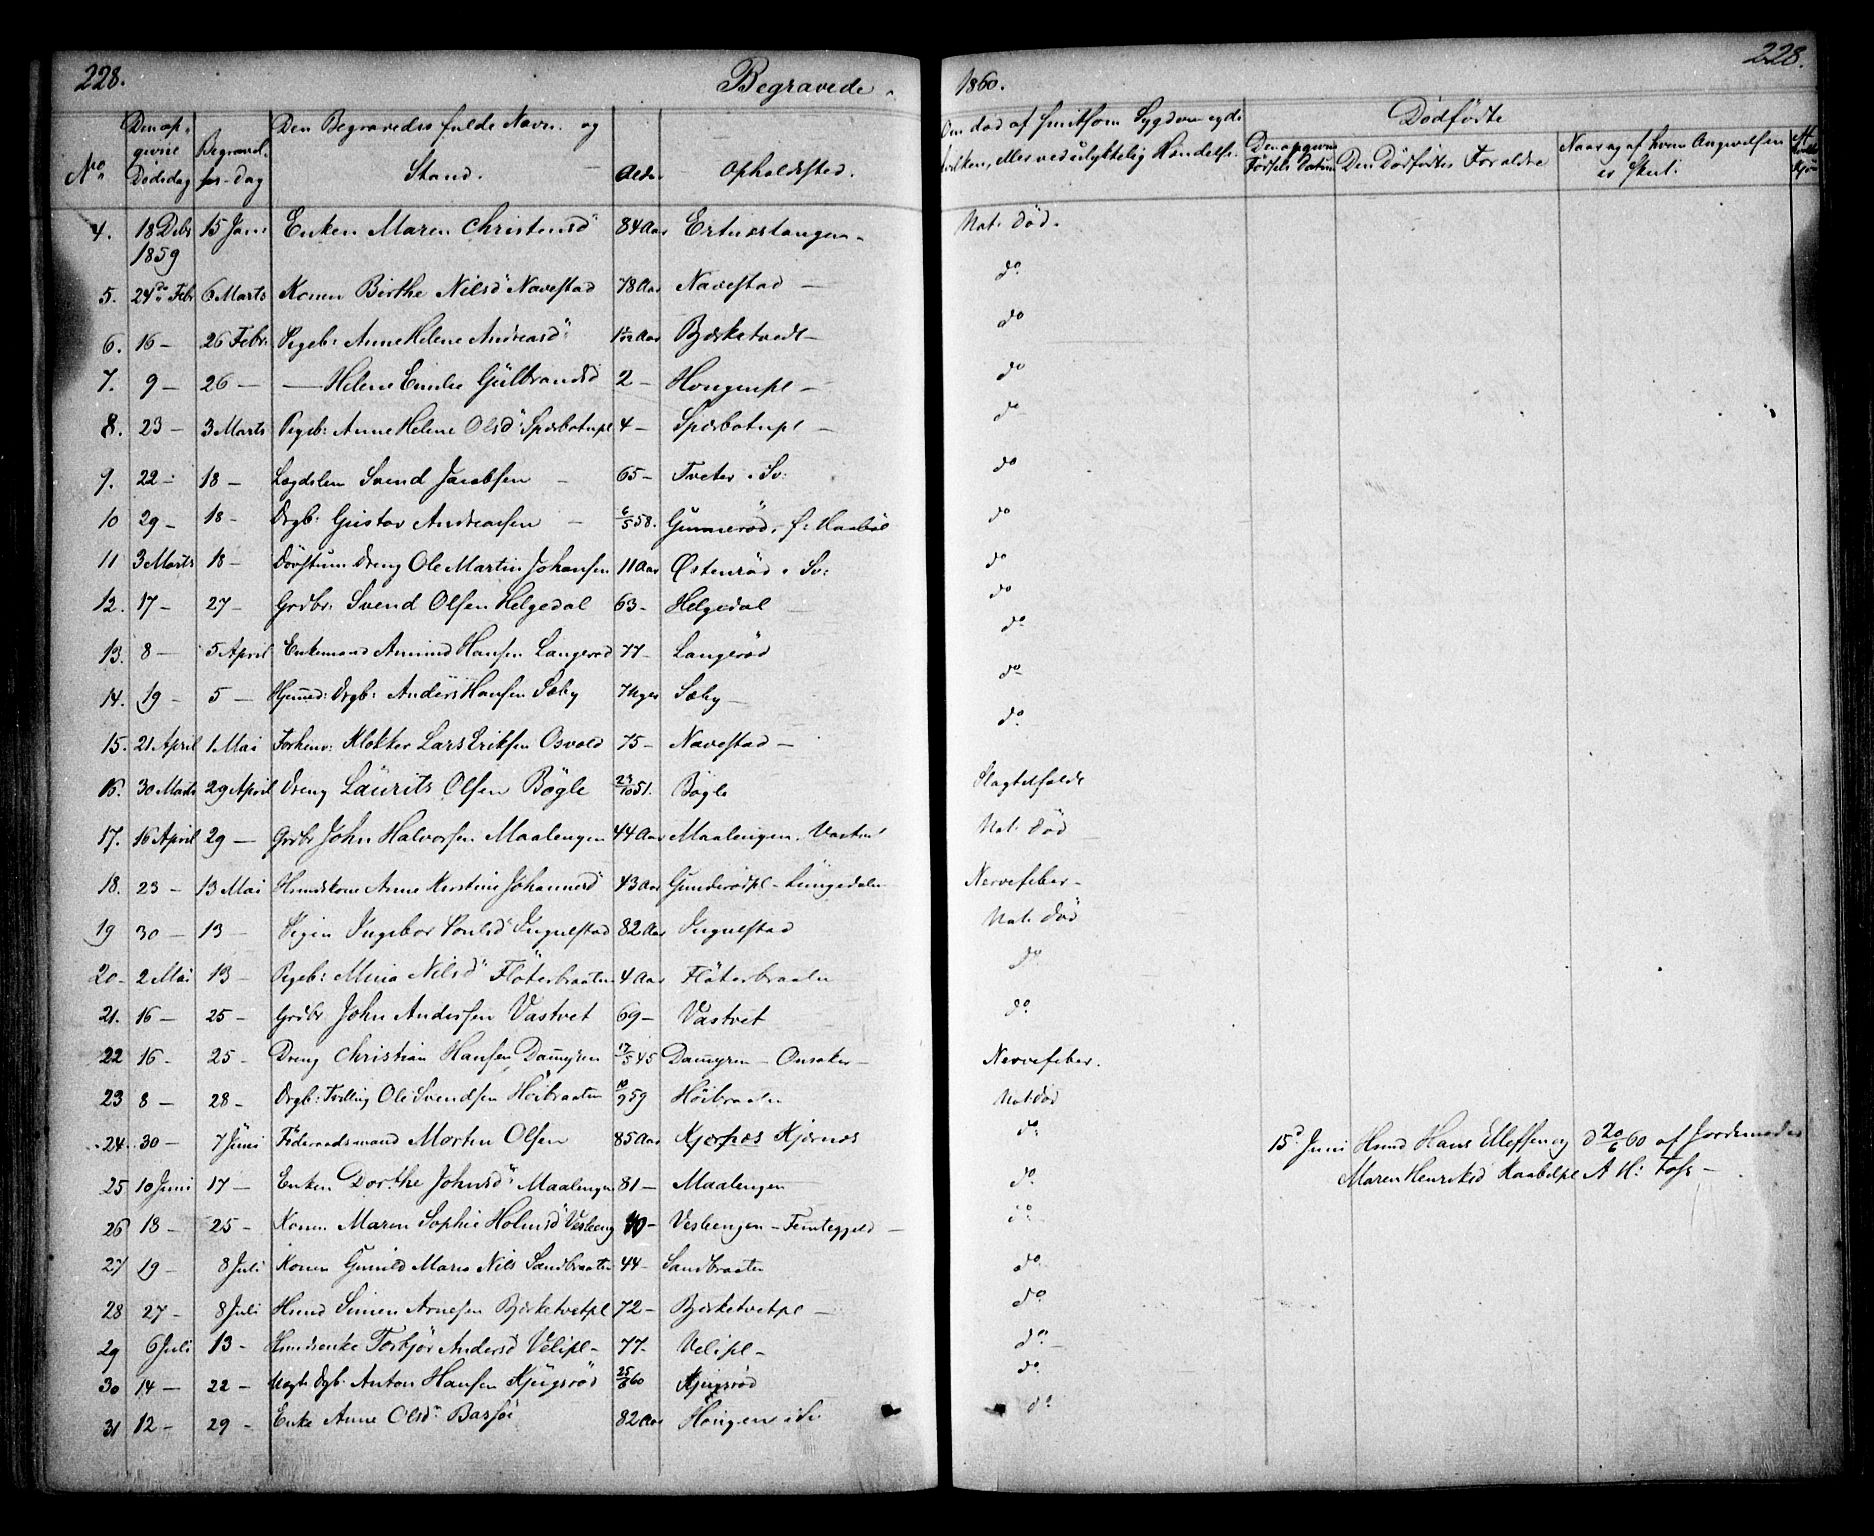 228.
Begravede
1860.
228.
No
Den op-
givne
Dødsdag
Begravel-
ses-dag
Den Begravedes fulde Navn og
Stand.
Alder
Opholdssted.
Om død af smitsom Sygdom og da
hvilken, eller ved ulykkelig Hændelse.
Dødfødte
Den opgivne
Fødsels Datum
Den Dødfødtes Forældre
Naar og af hvem Angivelsen
er skeet.
4. 18 Debr 1859 15 Janr Enken Maren Christensd 84 Aar Ertnestangen Nat. Død.
5. 24de Febr 6 Marts Konen Birthe Nilsd Navestad 78 Aar Navestad do
6. 16 — 26 Febr. Pigeb: Anne Helene Andreasd Bjerketvedt — do
7. 9 — 26 — — Helene Emilie Gulbrandsd 2 — Hougenpl — do
8. 23 — 3 Marts Pigeb: Anne Helene Olsd Spærbotnpl 4 — Spærbotnpl — do
9. 22 — 18 — Lægdslem Svend Jacobsen — 65 — Tveter i Sv: do
10 29 — 18 — Drgb: Gustav Andreassen — 6/5 58. Gunnerød, f: Haabøl do
11 3 Marts 18 — Døvstum Dreng Ole Martin Johansen 11 Aar Østenrød i Sv: do
12. 17 — 27 — Grdbr. Svend Olsen Helgedal 63 — Helgedal do
13. 8 — 5 April Enkemand Amund Hansen Langerød 77 — Langerød do
14. 19 — 5 — Hjemed: Drgb: Anders Hansen Sæby 7 Uger Sæby — do
15. 21 April 1 Mai Forhenv: Klokker Lars Eriksen Osvold 75 — Navestad — do
16. 30 Marts 29 April Dreng Laurits Olsen Bøgle 23/10 51. Bøgle Slagtilfælde
17. 16 April 29 — Grdbr John Halvorsen Maalengen 44 Aar Maalengen. Nat. Død
18. 23 — 13 Mai Hmdskone Anne Kirstine Johannesd 43 Aar Gunderødpl — Nervefeber —
19 30 — 13 — Pigen Ingebor Poulsd Ingulstad 82 Aar Ingulstad Nat. Død
20. 2 Mai 13 — Pigeb: Mina Nilsd Fløterbraaten 4 Aar Fløterbraaten do
21. 16 — 25 — Grdbr John Andersen Vastvet 69 — Vastvet do
22 16 — 25 — Dreng Christian Hansen Damyren 17/5 45 Damyren — Onsaker — Nervefeber.
23 8 — 28 — Drgb: Tvilling Ole Svendsen Høibraaten 10/9 59 Høibraaten Nat. Død
24. 30 — 7 Juni Føderaadsmand Morten Olsen 85 Aar Kjærnes Kjærnes do
15d Juni Hmd Hans Ellefsen og d 20/6 60 af Jordemoder
Maren Henriksd Haabølpl A M: Foss —
25 10 Juni 17 — Enken Dorthe Johnsd Maalengen 81 — Maalengen do
26 18 — 25 — Konen Maren Sophie Holmsd Vesleeng 40 — Vesleengen — do
27 19 — 8 Juli Konen Gunild Marie Nils Sandbraaten 44 — Sandbraaten do
28 27 — 8 Juli Hmd Simen Arnesen Bjerketvetpl 72 — Bjerketvetpl — do
29 6 Juli 13 — Hmdsenke Torbjør Andersd Velipl — 77 — Velipl — do
30 14 — 22 — Uægte Drgb: Anton Hansen Kjugsrød 25/6 60 Kjugsrød do
31 12 — 29 — Enke Anne Olsd Barsøe 82 Aar Hougen i Sv do